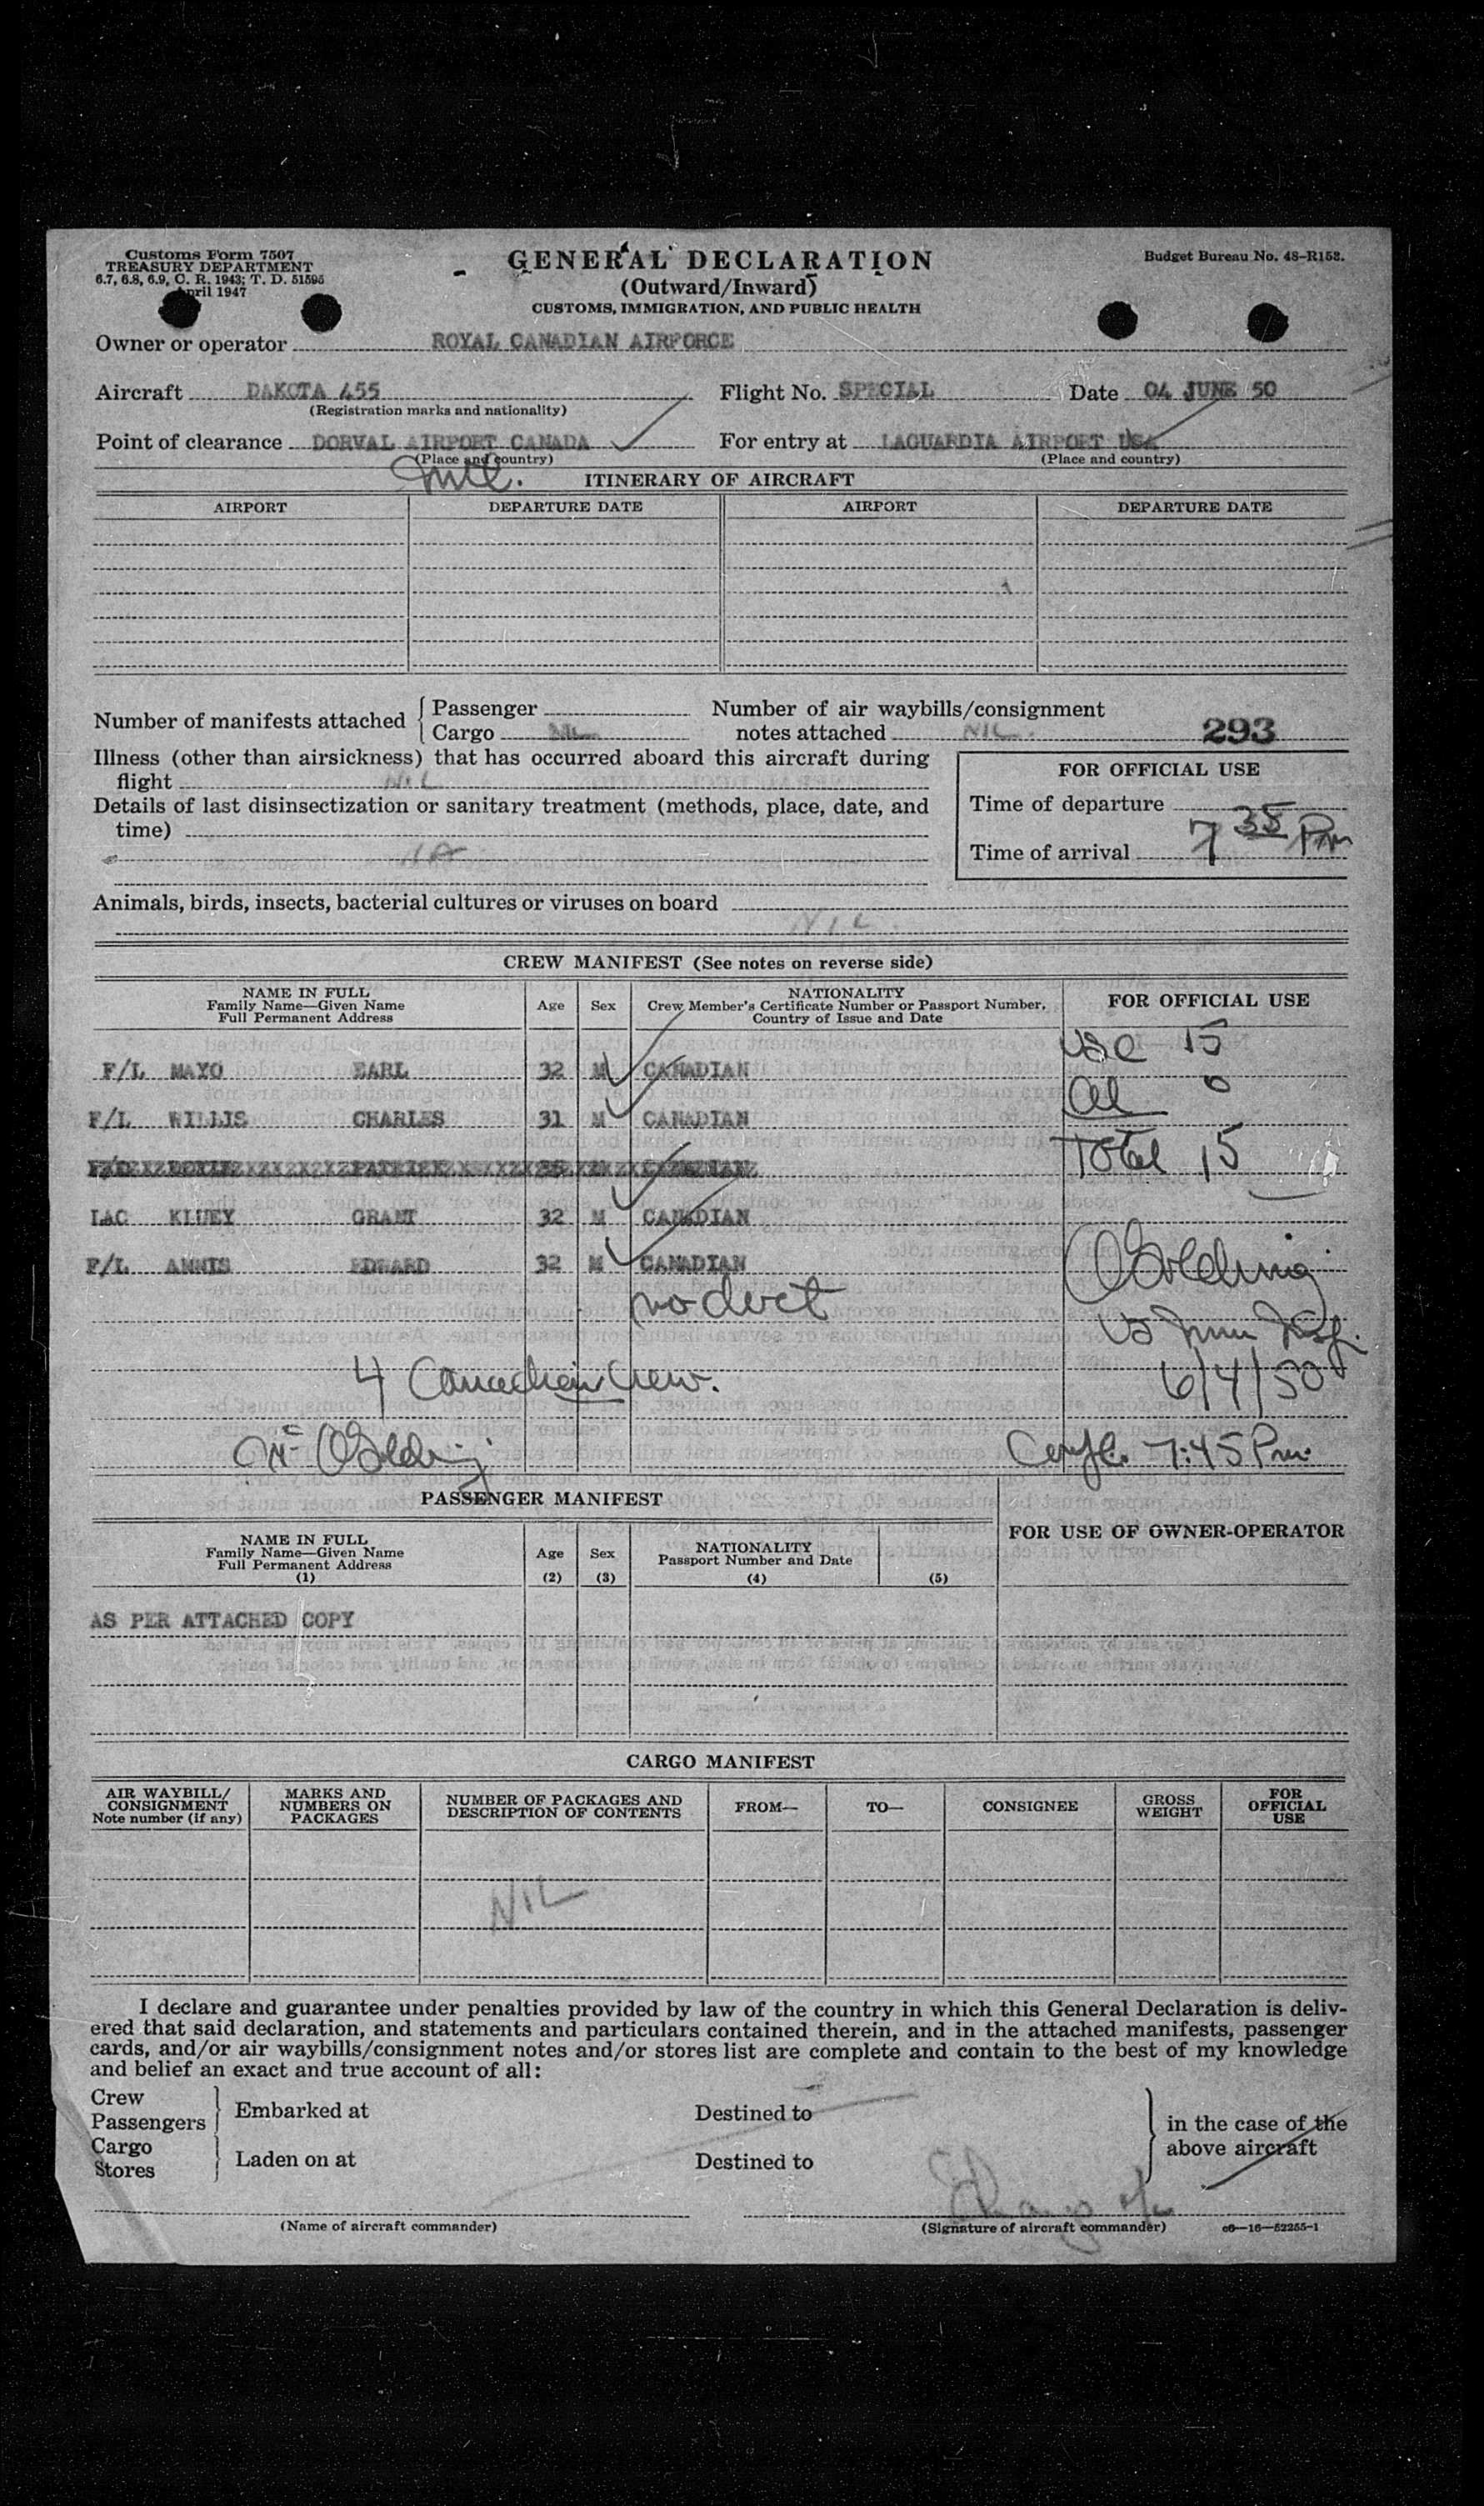 Customs Form 7507
TREASURY DEPARTMENT
6.7, 6.8, 6.9, C. R. 1943; T. D. 51595
April 1947
GENERAL DECLARATION
(Outward/Inward)
CUSTOMS, IMMIGRATION, AND PUBLIC HEALTH
Budget Bureau No. 48-R158.
Owner or operator ROYAL CANADIAN AIRFORCE
Aircraft DAKOTA 455 Flight No. SPECIAL Date 04 JUNE 50
(Registration marks and nationality)
Point of clearance DORVAL AIRPORT CANADA For entry at LAGUARDIA AIRPORT USA
(Place and country) (Place and country)
ITINERARY OF AIRCRAFT
AIRPORT DEPARTURE DATE AIRPORT DEPARTURE DATE
Number of manifests attached { Passenger
Cargo NIL
Number of air waybills/consignment
notes attached NIL. 293
Illness (other than airsickness) that has occurred aboard this aircraft during
flight NIL
Details of last disinsectization or sanitary treatment (methods, place, date, and
time)
FOR OFFICIAL USE
Time of departure
Time of arrival 7 35 Pm
Animals, birds, insects, bacterial cultures or viruses on board
NIL.
CREW MANIFEST (See notes on reverse side)
NAME IN FULL
Family Name—Given Name
Full Permanent Address
Age Sex
NATIONALITY
Crew Member's Certificate Number or Passport Number,
Country of Issue and Date
FOR OFFICIAL USE
USC 15
F/L MAYO EARL 32 M CANADIAN
al 0
F/L WILLIS CHARLES 31 M CANADIAN
Total 15
LAC KLUEY GRANT 32 M CANADIAN
F/L ANNIS EDWARD 32 M CANADIAN
Golding
no doct
US Imm Insp.
4 Canadian Crew.
6/4/50
Golding
7:45 Pm.
PASSENGER MANIFEST
NAME IN FULL
Family Name—Given Name
Full Permanent Address
(1)
Age
(2)
Sex
(3)
NATIONALITY
Passport Number and Date
(4) (5)
FOR USE OF OWNER-OPERATOR
AS PER ATTACHED COPY
CARGO MANIFEST
AIR WAYBILL/
CONSIGNMENT
Note number (if any)
MARKS AND
NUMBERS ON
PACKAGES
NUMBER OF PACKAGES AND
DESCRIPTION OF CONTENTS
FROM— TO— CONSIGNEE
GROSS
WEIGHT
FOR
OFFICIAL
USE
NIL
I declare and guarantee under penalties provided by law of the country in which this General Declaration is deliv-
ered that said declaration, and statements and particulars contained therein, and in the attached manifests, passenger
cards, and/or air waybills/consignment notes and/or stores list are complete and contain to the best of my knowledge
and belief an exact and true account of all:
Crew
Passengers } Embarked at Destined to
Cargo
Stores } Laden on at Destined to
} in the case of the
above aircraft
(Name of aircraft commander) (Signature of aircraft commander) c6—16—52255-1